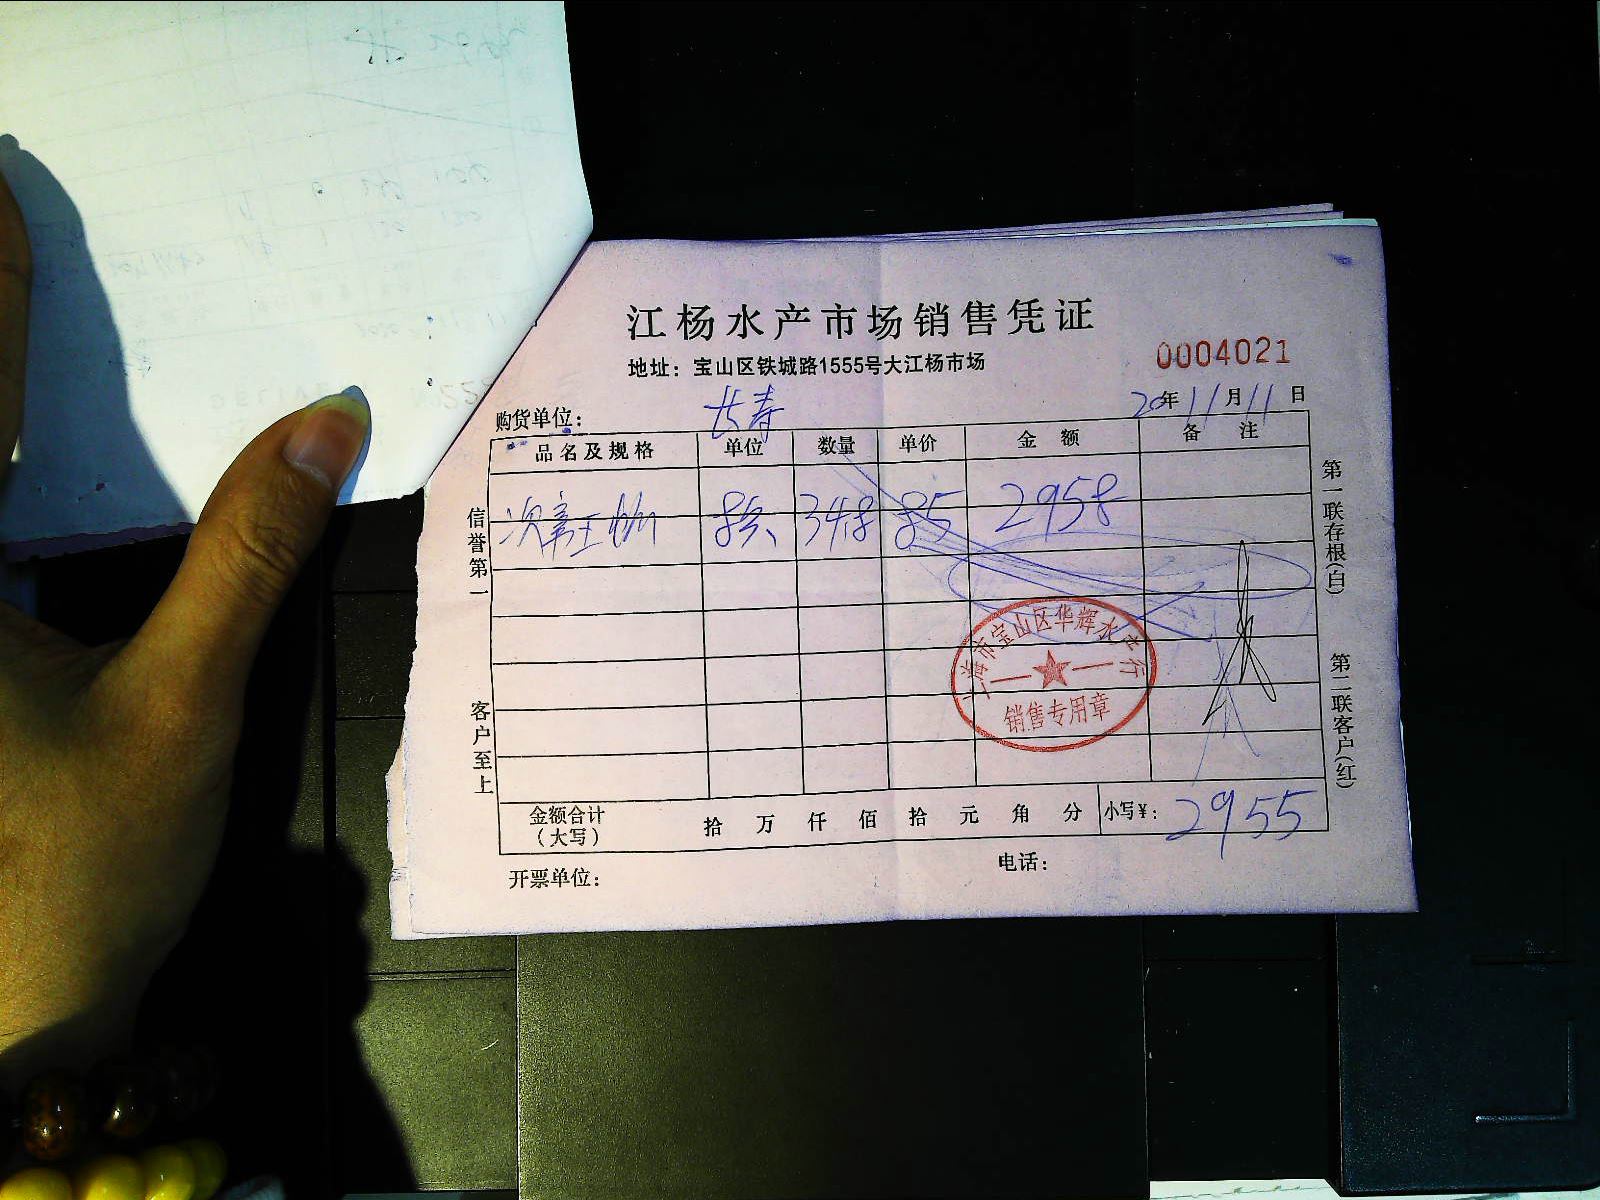 江杨水产市场销售凭证
地址：宝山区铁城路1555号大江杨市场
0004021
购货单位：长寿
20年11月11日
品名及规格 单位 数量 单价 金额 备注
348 85 2958
金额合计（大写） 拾 万 仟 佰 拾 元 角 分 小写¥：2955
开票单位：
电话：
信誉第一
客户至上
第一联存根(白)
第二联客户(红)
上海市宝山区华辉水产行
销售专用章